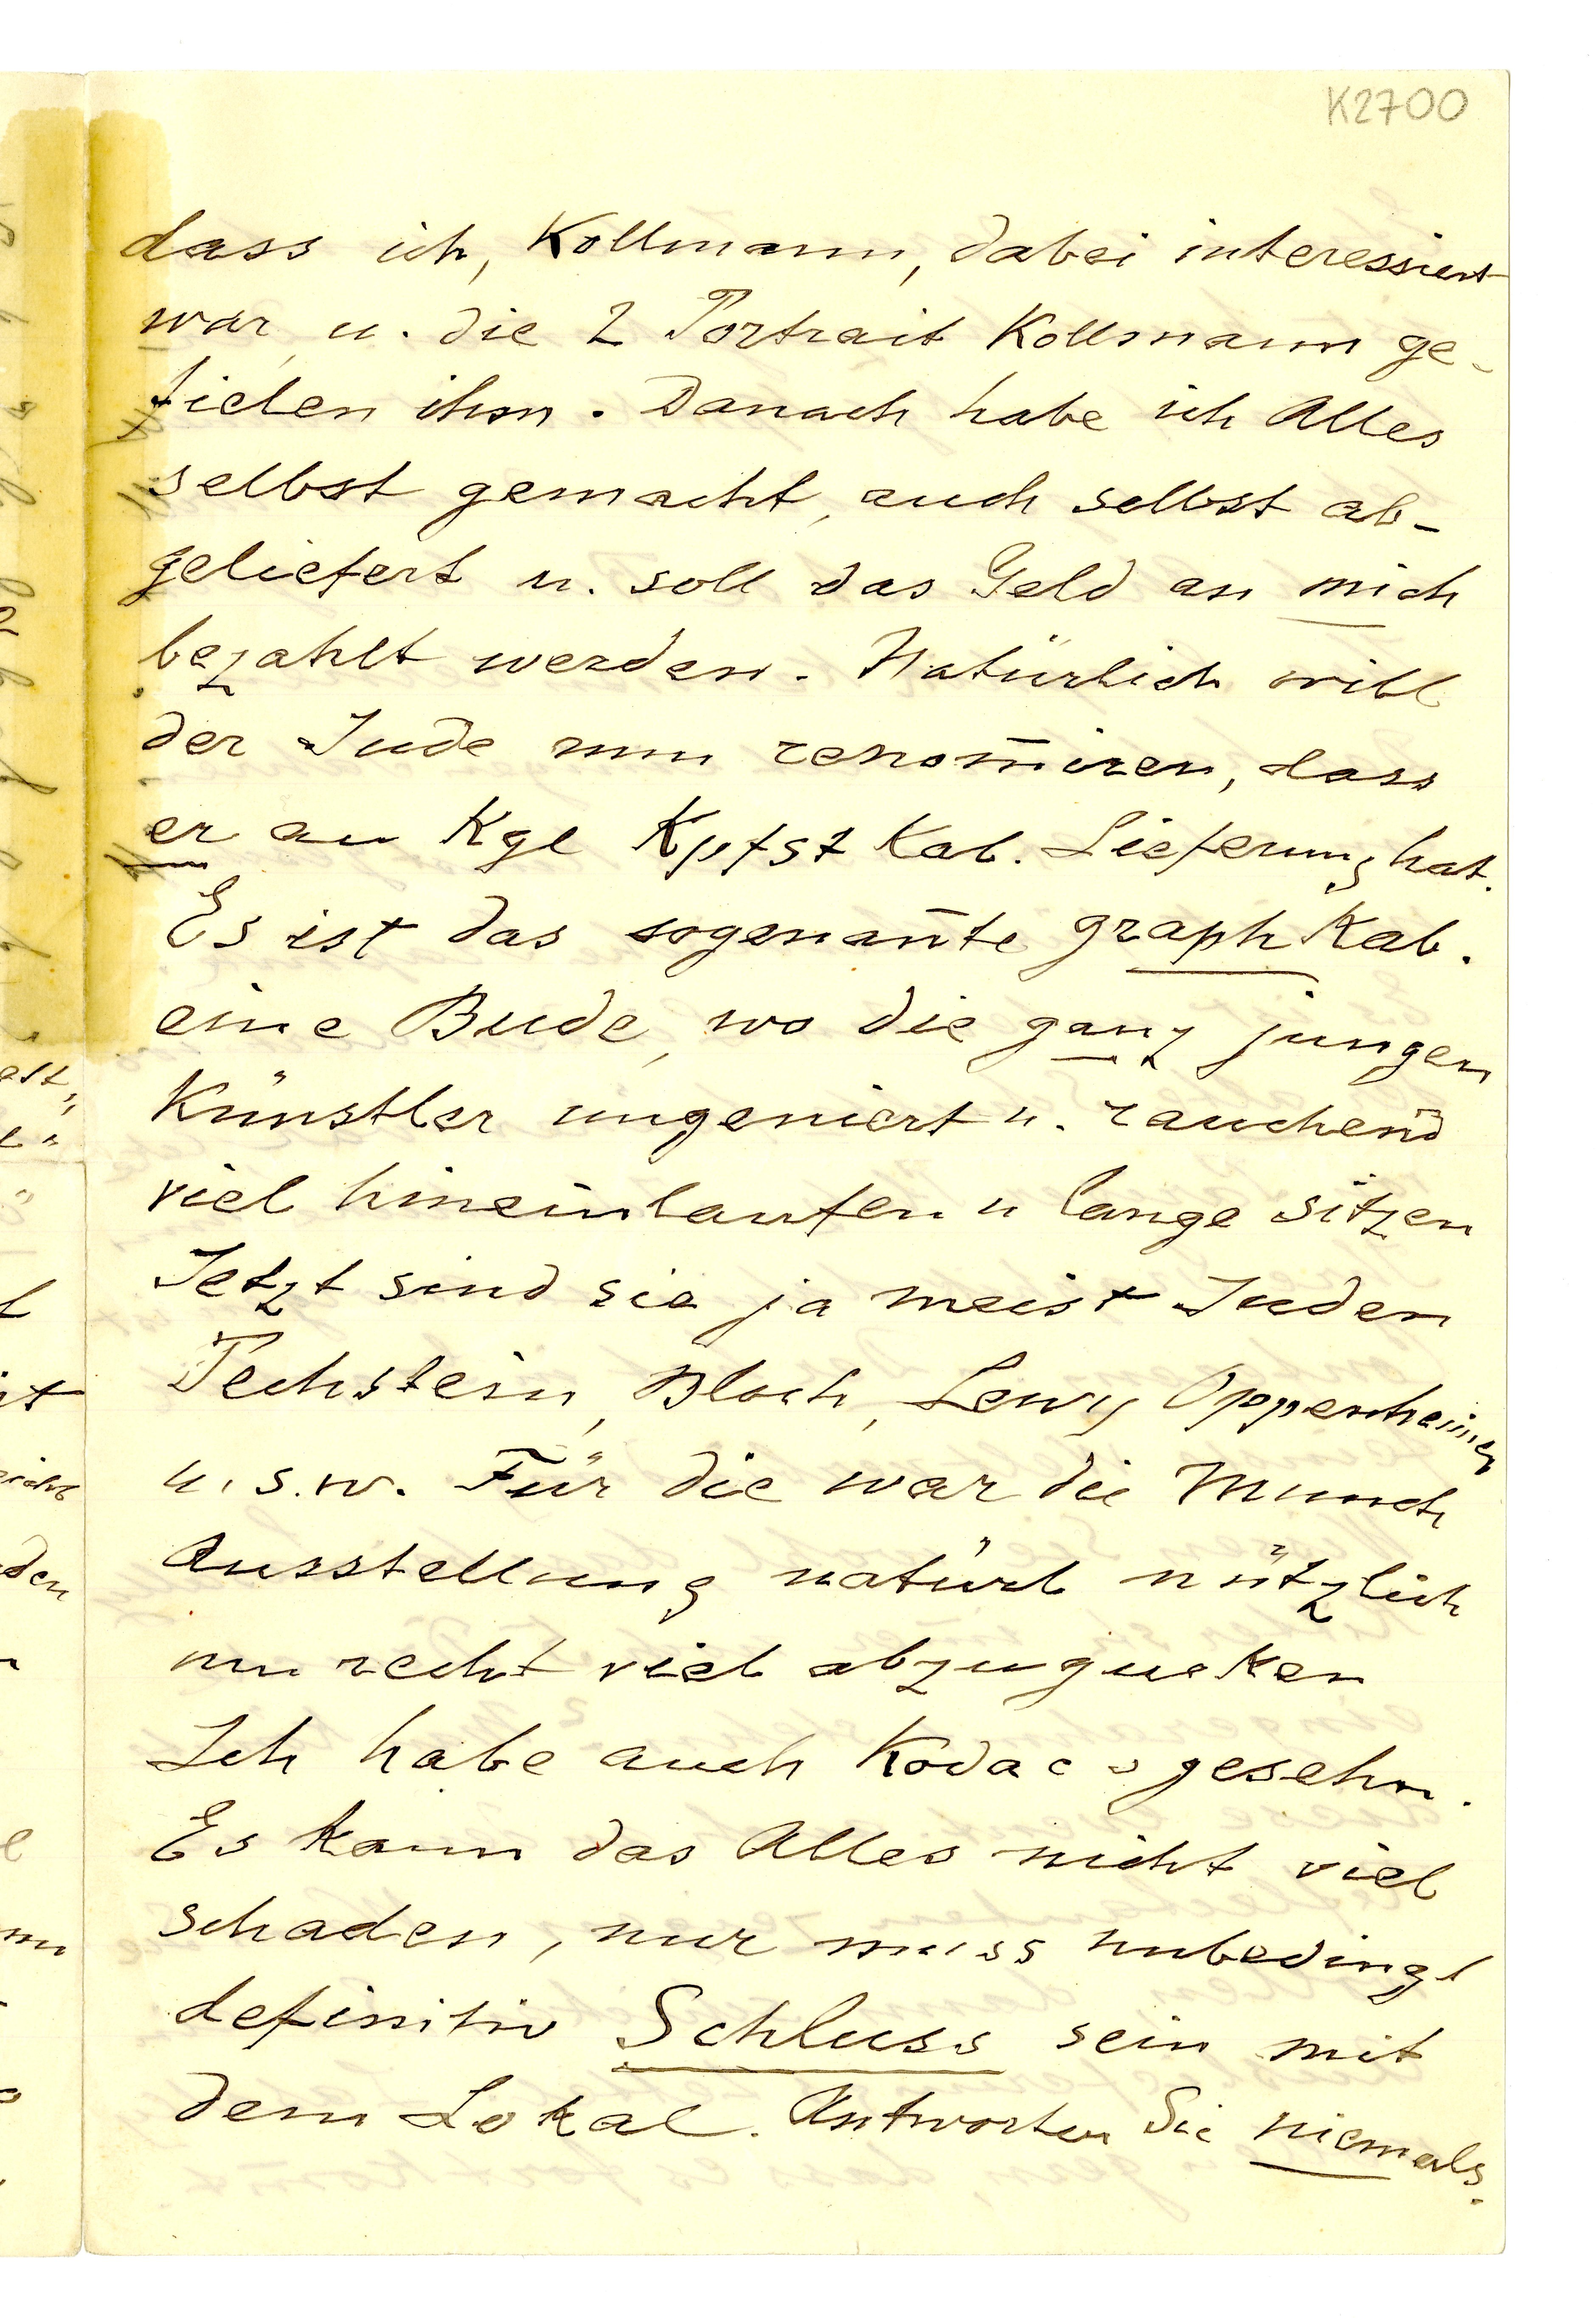 K2700
dass ich, Kollmann, dabei interessiert
war u. die 2 Portrait Kollmann ge-
fielen ihm. Danach habe ich Alles
selbst gemacht, auch selbst ab-
geliefert u. soll das Geld an mich
bezahlt werden. Natürlich will
der Jude nun renom̅iren, dass
er an Kgl Kpfst Kab. Lieferung hat.
Es ist das sogenan̅te graph Kab.
eine Bude, wo die ganz jungen
Künstler ungeniert u. rauchend
viel hineinlaufen u lange sitzen
Jetzt sind sie ja meist Juden
Pechstein, Bloch, Lewy Oppenheimer
u. s. w. Für die war die Munch
Ausstellung natürl nützlich
um recht viel abzugucken
Ich habe auch Kodacs gesehn.
Es kann das Alles nicht viel
schaden, nur muss unbedingt
definitiv Schluss sein mit
dem Lokal. Antworten Sie niemals.